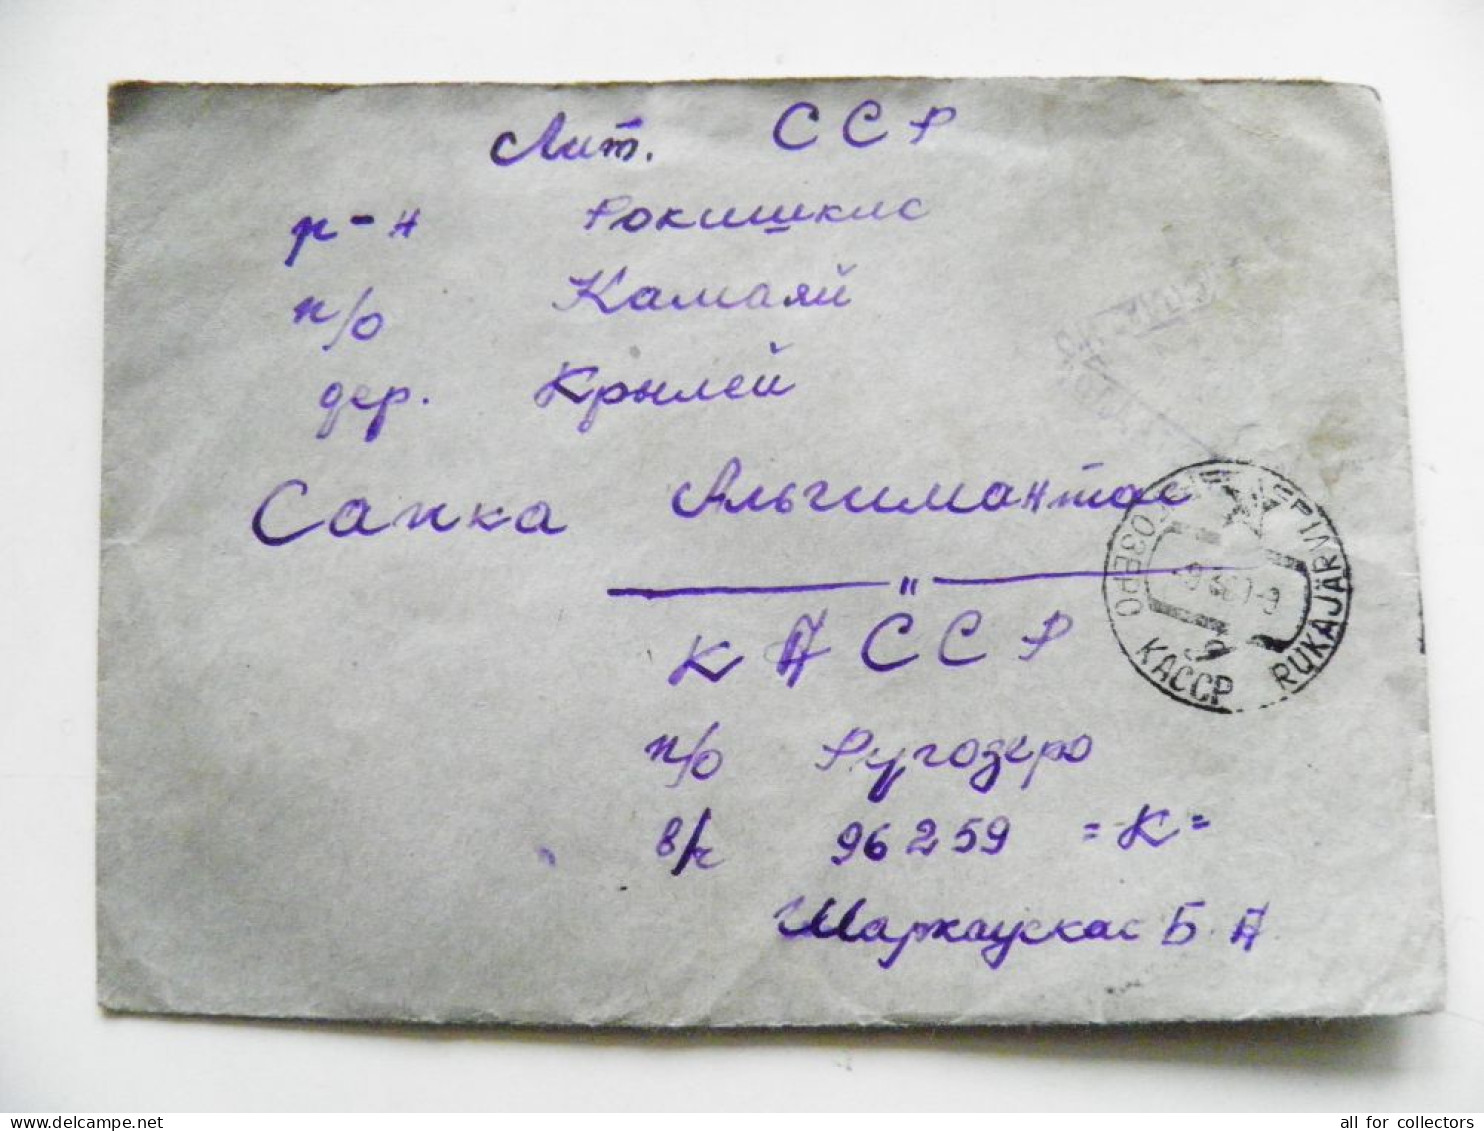 Лит. ССР
р-н Рокишкис
п/о Камаяй
дер. Крылей
Сапка Альгимантас
"
К А ССР
п/о Ругозеро
в/ч 96259 =К=
Маркаускас Б. А
ОЗЕРО КАССР RUKAJÄRVI
all for collectors